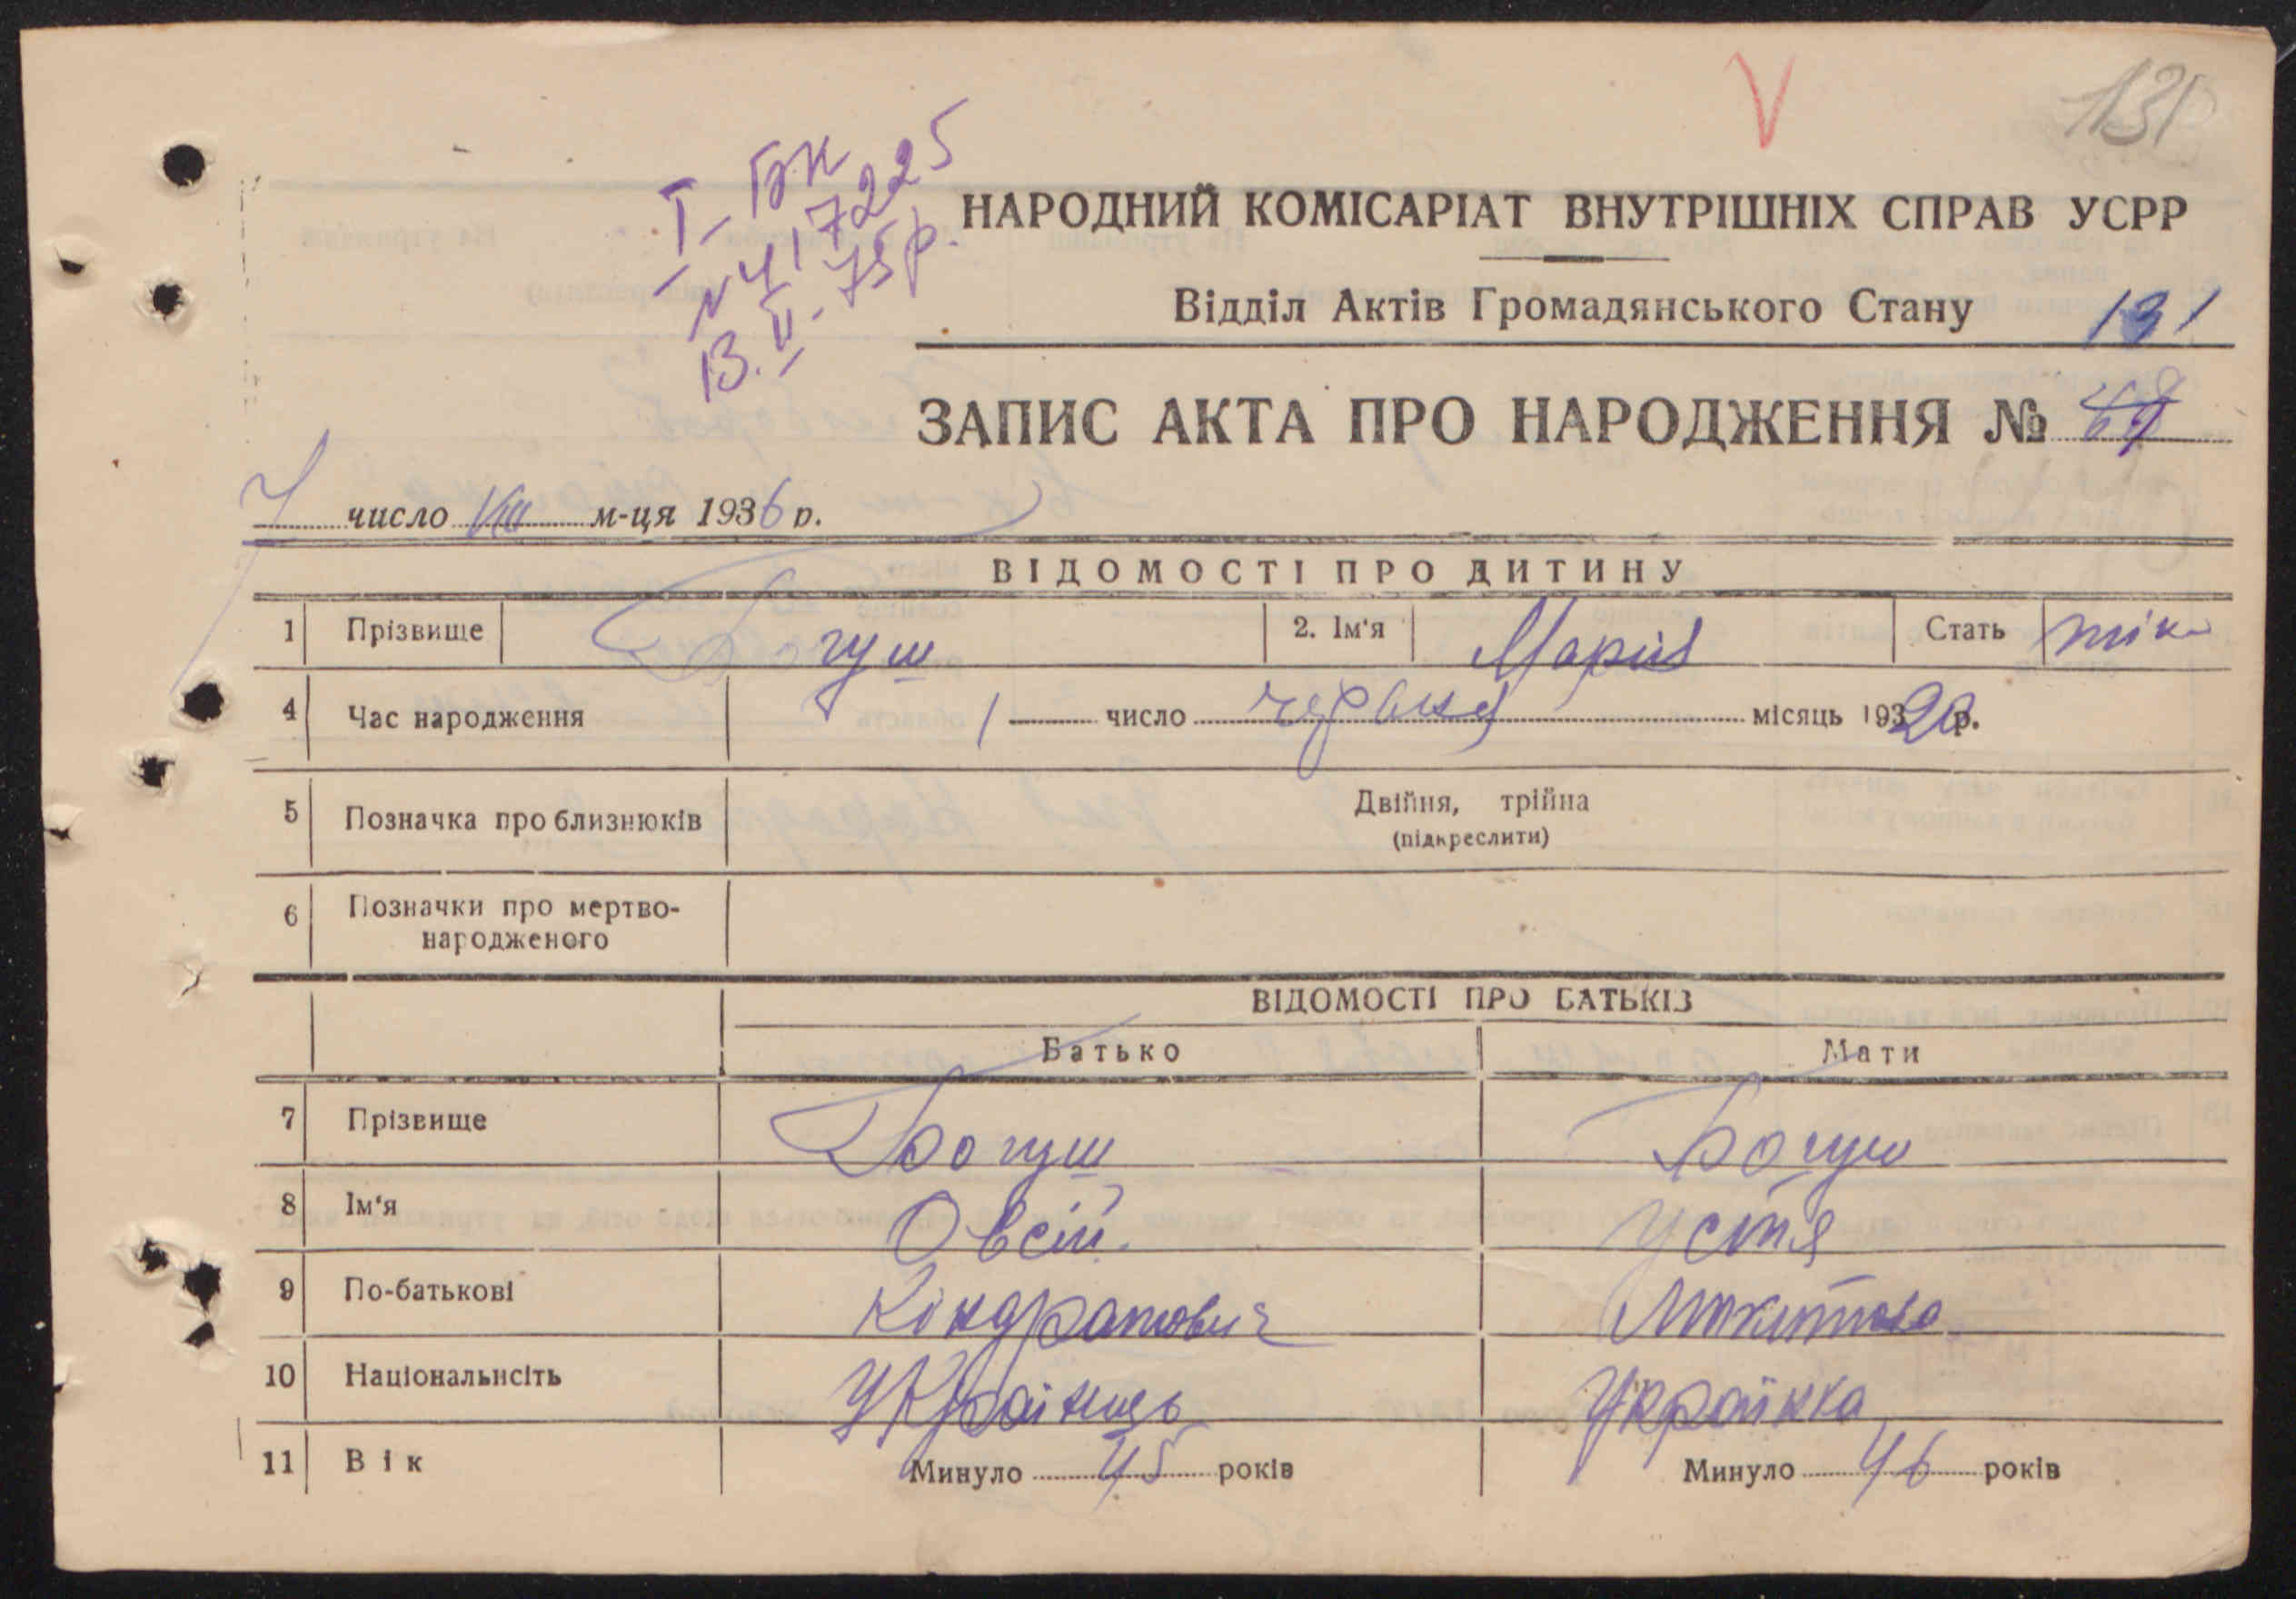 131
І-БК
№ 417225
13.V-75р.
НАРОДНИЙ КОМІСАРІАТ ВНУТРІШНІХ СПРАВ УСРР
Відділ Актів Громадянського Стану 131
ЗАПИС АКТА ПРО НАРОДЖЕННЯ №
7 число VIII м-ця 1936 р.
ВІДОМОСТІ ПРО ДИТИНУ
1 Прізвище Богуш 2. Ім'я Марія Стать жін
4 Час народження 1 число червня місяць 1920 р.
5 Позначка про близнюків Двійня, трійна
(підкреслити)
6 Позначки про мертво-
народженого
ВІДОМОСТІ ПРО БАТЬКІВ
Батько Мати
7 Прізвище Богуш Богуш
8 Ім'я Овсій Устя
9 По-батькові Кіндратович Микитова
10 Національнсіть Українець Українка
11 Вік Минуло 45 років Минуло 46 років